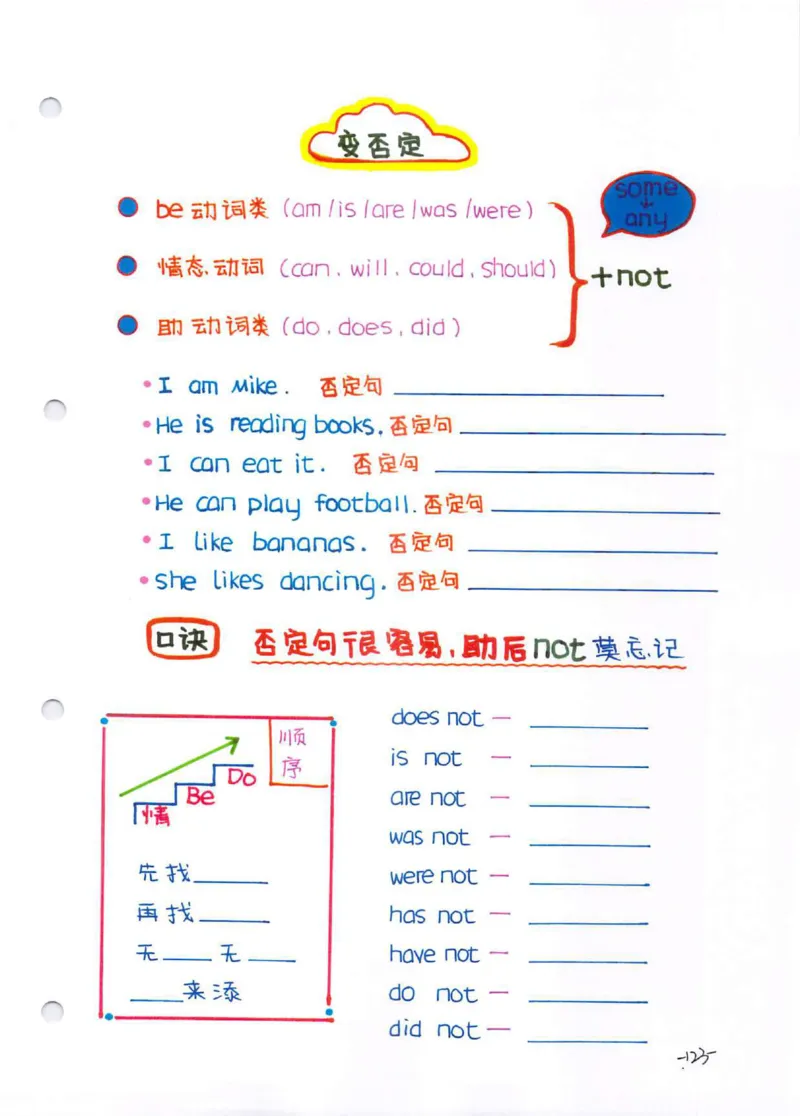 变否定
some
↓
any
be动词类 (am/is/are/was/were)
情态动词 (can、will、could、should)
+not
助动词类 (do、does、did)
•I am Mike. 否定句 ____________
•He is reading books. 否定句 ____________
•I can eat it. 否定句 ____________
•He can play football. 否定句 ____________
•I like bananas. 否定句 ____________
•she likes dancing. 否定句 ____________
口诀 否定句很容易,助后not莫忘记
顺序
Do
Be
情
先找______
再找______
无____无____
____来添
does not — ________
is not — ________
are not — ________
was not — ________
were not — ________
has not — ________
have not — ________
do not — ________
did not — ________
-123-